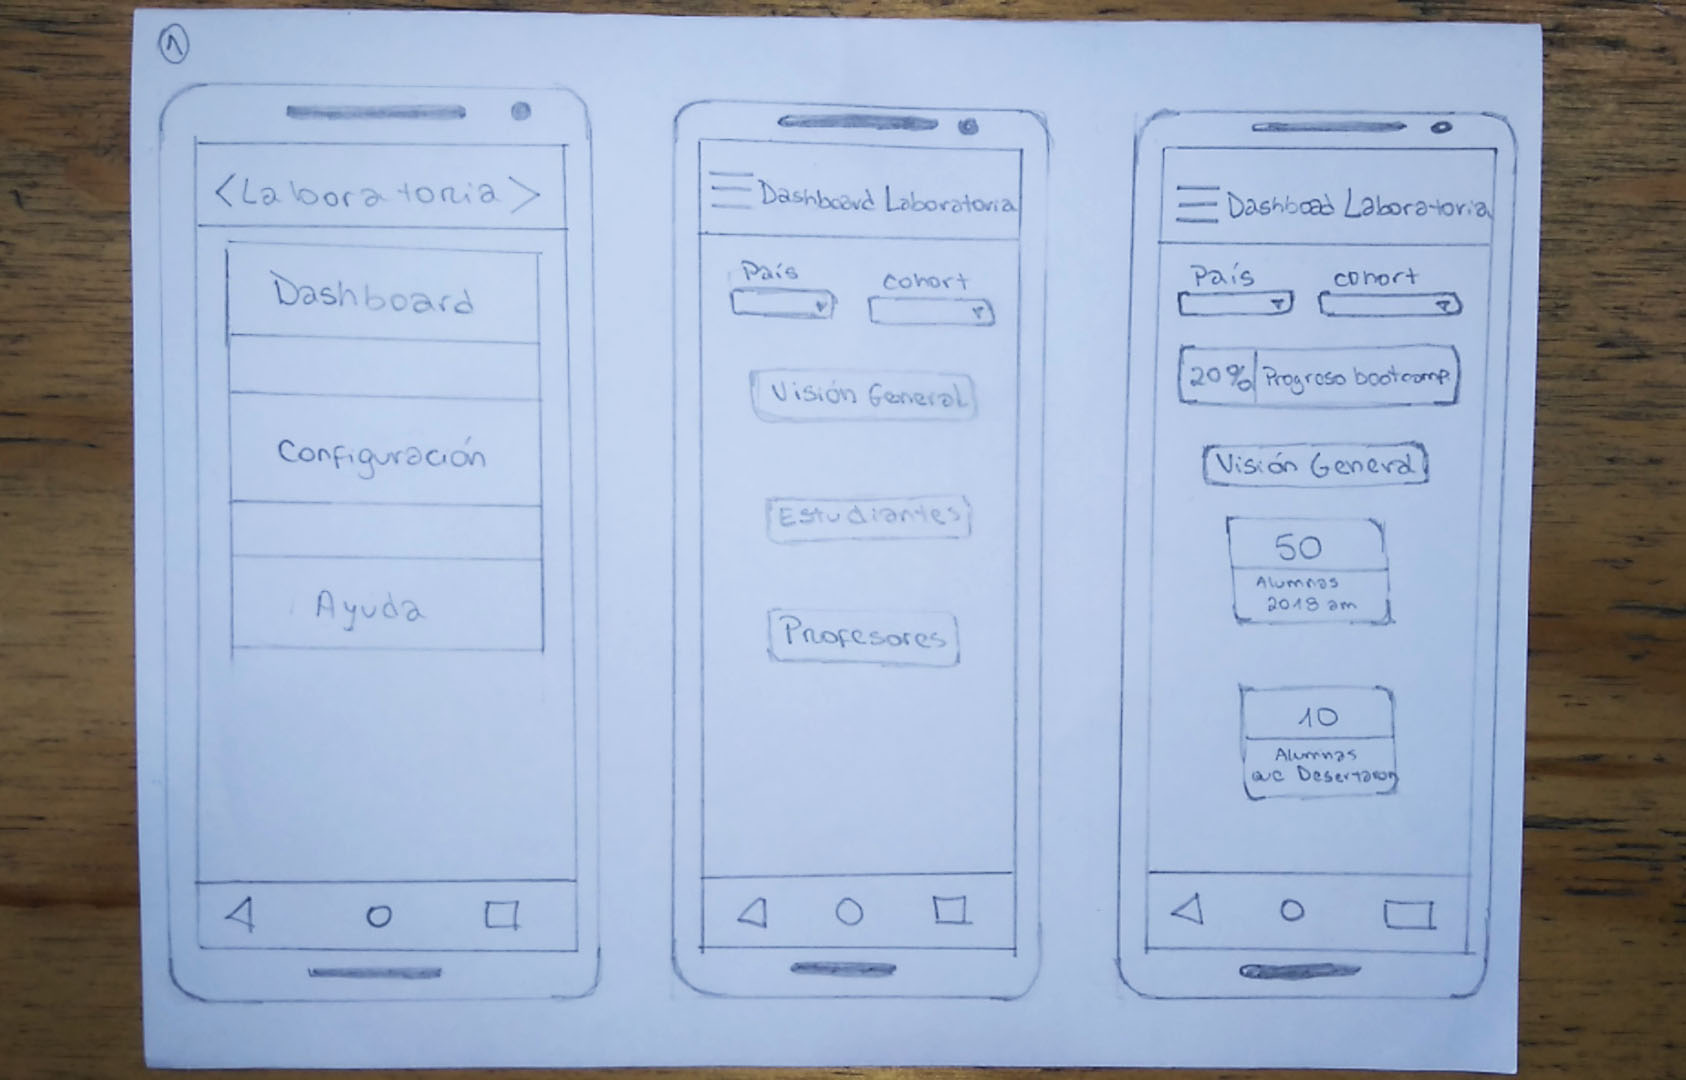 1
<Laboratoria>
Dashboard
Configuración
Ayuda
Dashboard Laboratoria
País cohort
Visión General
Estudiantes
Profesores
Dashboad Laboratoria
País cohort
20% Progroso bootcamp
Visión General
50
Alumnas
2018 am
10
Alumnas
que Desertaron